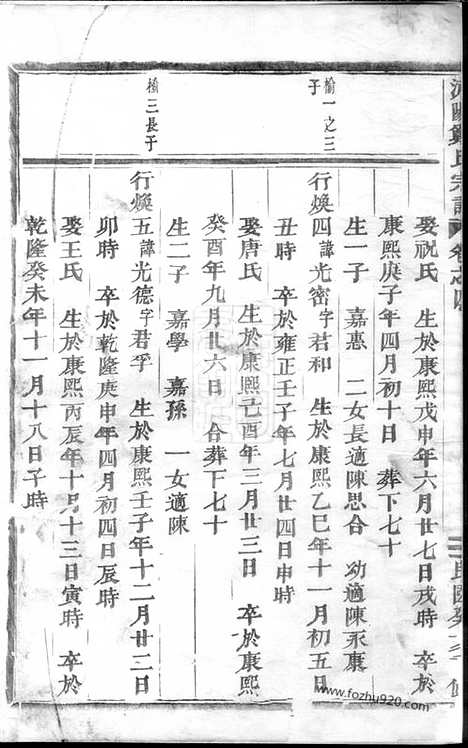 娶祝氏 生於康熙戊申年六月廿七日戌時 卒於
康熙庚子年四月初十日 葬下七十
生一子 嘉惠 二女長適陳思合 幼適陳永康
榆一之三子
行煥四諱光密字君和 生於康熙乙巳年十一月初五日
丑時 卒於雍正壬子年七月廿四日申時
娶唐氏 生於康熙己酉年三月廿三日 卒於康熙
癸酉年九月廿六日 合葬下七十
生二子 嘉學 嘉孫 一女適陳
榆三長子
行煥五諱光德字君孚 生於康熙壬子年十二月廿二日
卯時 卒於乾隆庚申年四月初四日辰時
娶王氏 生於康熙丙辰年十月十三日寅時 卒於
乾隆癸未年十一月十八日子時
www.fozhu920.com